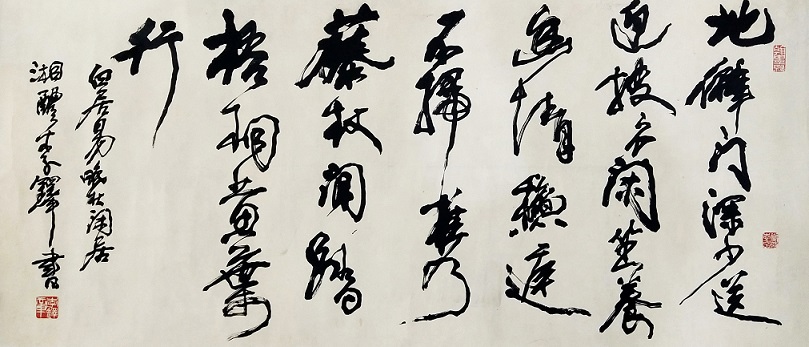 地僻门深少送
迎披衣闲坐养
幽情穐庭
不掃携
藤杖闲踏
梧桐黄葉
行
白居易晚秋闲居
湘醴李鐸書